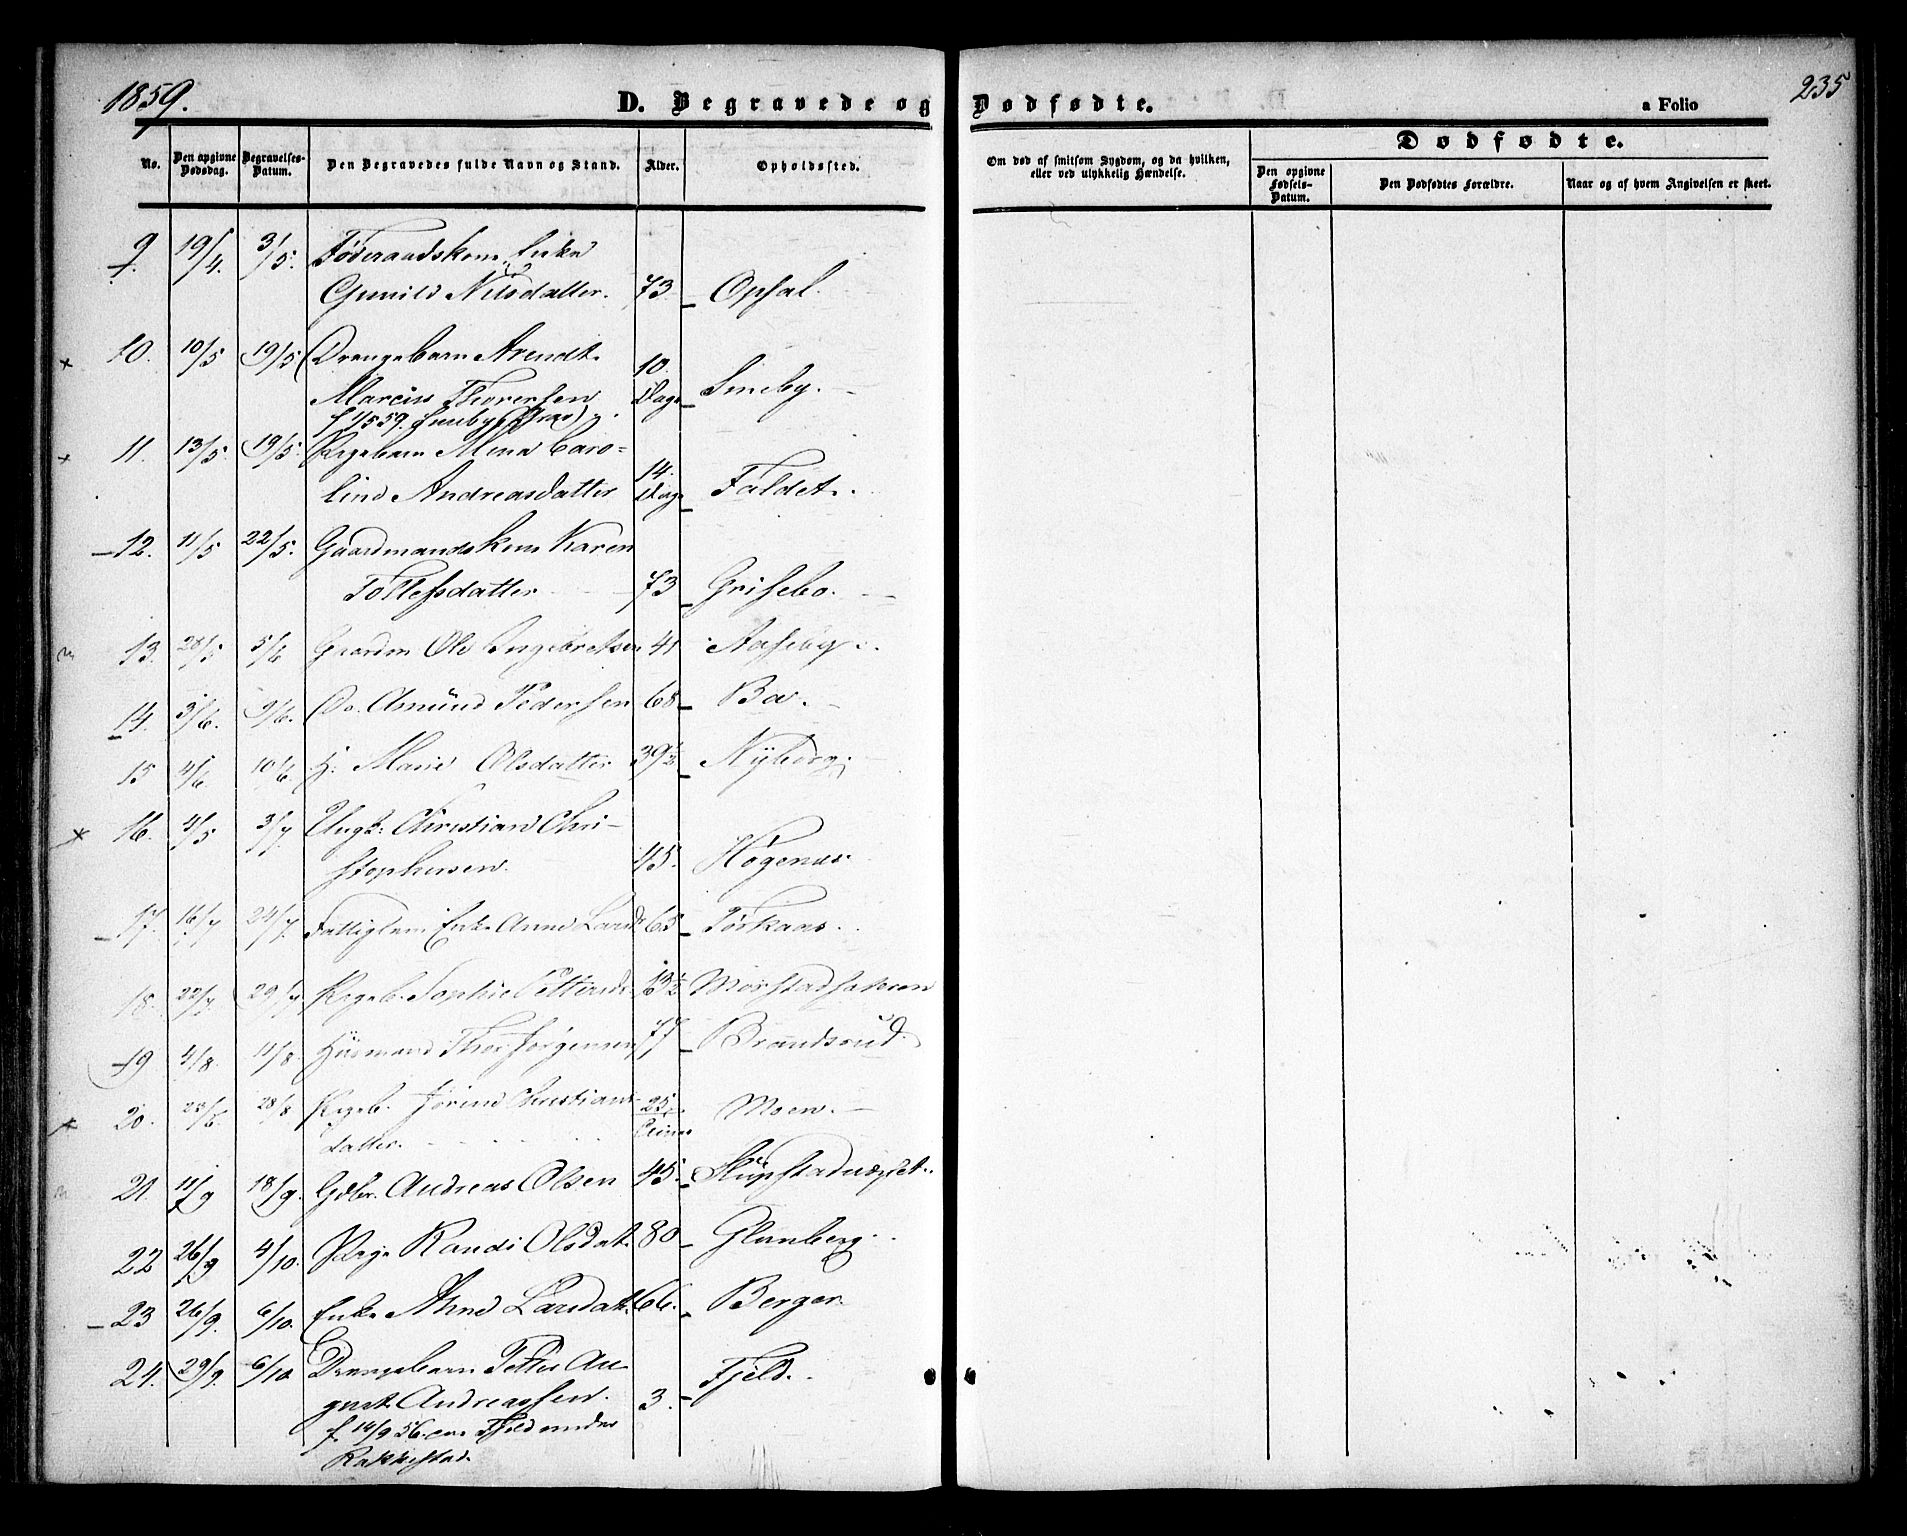 1859.
D. Begravede og Dødfødte.
a Folio
235
No.
Den opgivne Dødsdag.
Begravelses-Datum.
Den Begravedes fulde Navn og Stand.
Alder.
Opholdssted.
Om død af smitsom Sygdom, og da hvilken, eller ved ulykkelig Hændelse.
Dødfødte.
Den opgivne Fødsels-Datum.
Den Dødfødtes Forældre.
Naar og af hvem Angivelsen er skeet.
9. 19/4. 3/5. Føderaadskone, Enke
Gunild Nilsdatter. 73 Opsal.
10. 10/5 19/5 Drengebarn Arendt
Marcius Thoresen 10 Dage Smeby.
11. 13/5. 19/5. Pigebarn Mina Caro-
line Andreasdatter 14 Dage Faldet.
12. 11/5 22/5. Gaardmandskone Karen
Tollefsdatter 73 Grisebo.
13. 28/5 5/6 Gaardm Ole Ingebretsen 41 Aaseby.
14. 3/6. 9/6. Do. Amund Pedersen 68 Bø.
15 4/6 10/6. H. Marie Olsdatter 39 1/2 Nyborg.
16. 4/5 3/7. Ungk: Christian Chri-
stophersen. 45. Høgenæs.
17. 16/7 24/7. Fattiglem Enke Anne Larsd 65 Torkaas.
18. 22/7 29/7 Pigeb. Sophie 13 1/2
19 4/8. 11/8. Husmand Thor Jørgensen 77 Brandsrud.
20. 28/8 Pigeb. Jørine Christians-
datter. 25 Moen.
21. 11/9 18/9. Gdbr. Andreas Olsen 45.
22 26/9 4/10. Pige Randi Olsdat. 80 Glenberg.
23 26/9. 6/10. Enke Anne Larsdat. 66. Berger.
24. 29/9. 6/10 Drengebarn Petter Au-
gust Andreassen. 3. Fjeld.
f. 14/9 56. Fjeld under
Rakkestad.